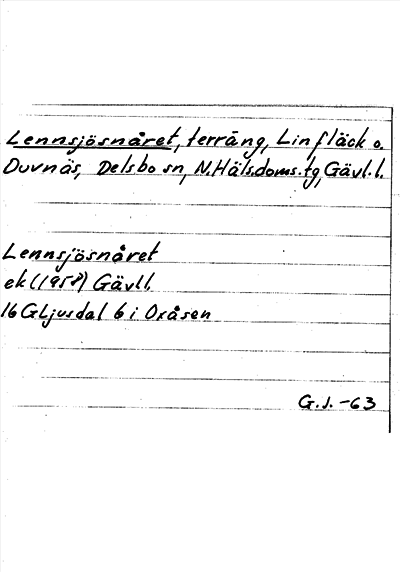 Lennsjösnåret, terräng, Linfläck o.
Duvnäs, Delsbo sn, N.Häls.doms.tg, Gävl.l.
Lennsjösnåret
ek (1958) Gävll.
16 G Ljusdal 6 i Oxåsen
G.J. -63